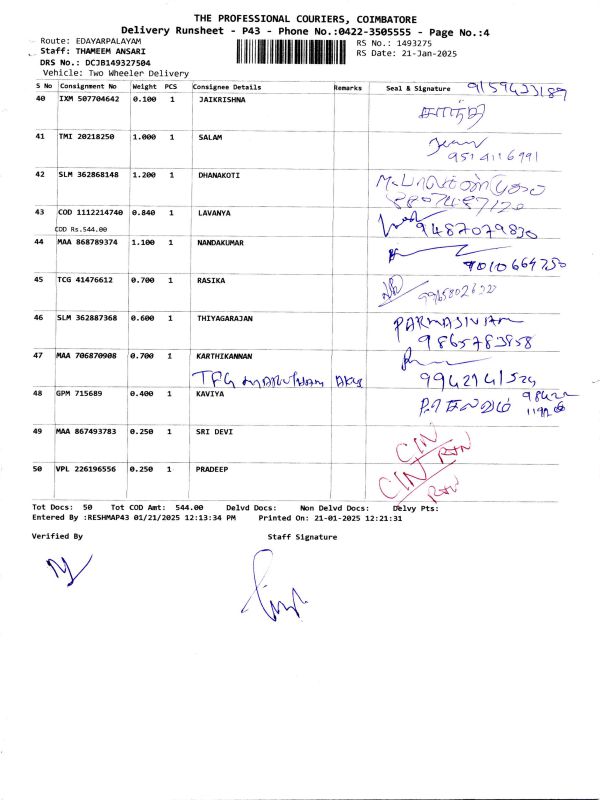 THE PROFESSIONAL COURIERS, COIMBATORE
Delivery Runsheet - P43 - Phone No.:0422-3505555 - Page No.:4
Route: EDAYARPALAYAM RS No.: 1493275
Staff: THAMEEM ANSARI RS Date: 21-Jan-2025
DRS No.: DCJB149327504
Vehicle: Two Wheeler Delivery
S No Consignment No Weight PCS Consignee Details Remarks Seal & Signature 9159433189
40 IXM 507704642 0.100 1 JAIKRISHNA
41 TMI 20218250 1.000 1 SALAM
9514116991
42 SLM 362868148 1.200 1 DHANAKOTI
8807487120
43 COD 1112214740 0.840 1 LAVANYA
COD Rs.544.00 9487079830
44 MAA 868789374 1.100 1 NANDAKUMAR
9010664750
45 TCG 41476612 0.700 1 RASIKA
46 SLM 362887368 0.600 1 THIYAGARAJAN PARMASIVAM
9865783858
47 MAA 706870908 0.700 1 KARTHIKANNAN
48 GPM 715689 0.400 1 KAVIYA
49 MAA 867493783 0.250 1 SRI DEVI CIN
RTN
50 VPL 226196556 0.250 1 PRADEEP CIN
RTN
Tot Docs: 50 Tot COD Amt: 544.00 Delvd Docs: Non Delvd Docs: Delvy Pts:
Entered By :RESHMAP43 01/21/2025 12:13:34 PM Printed On: 21-01-2025 12:21:31
Verified By Staff Signature